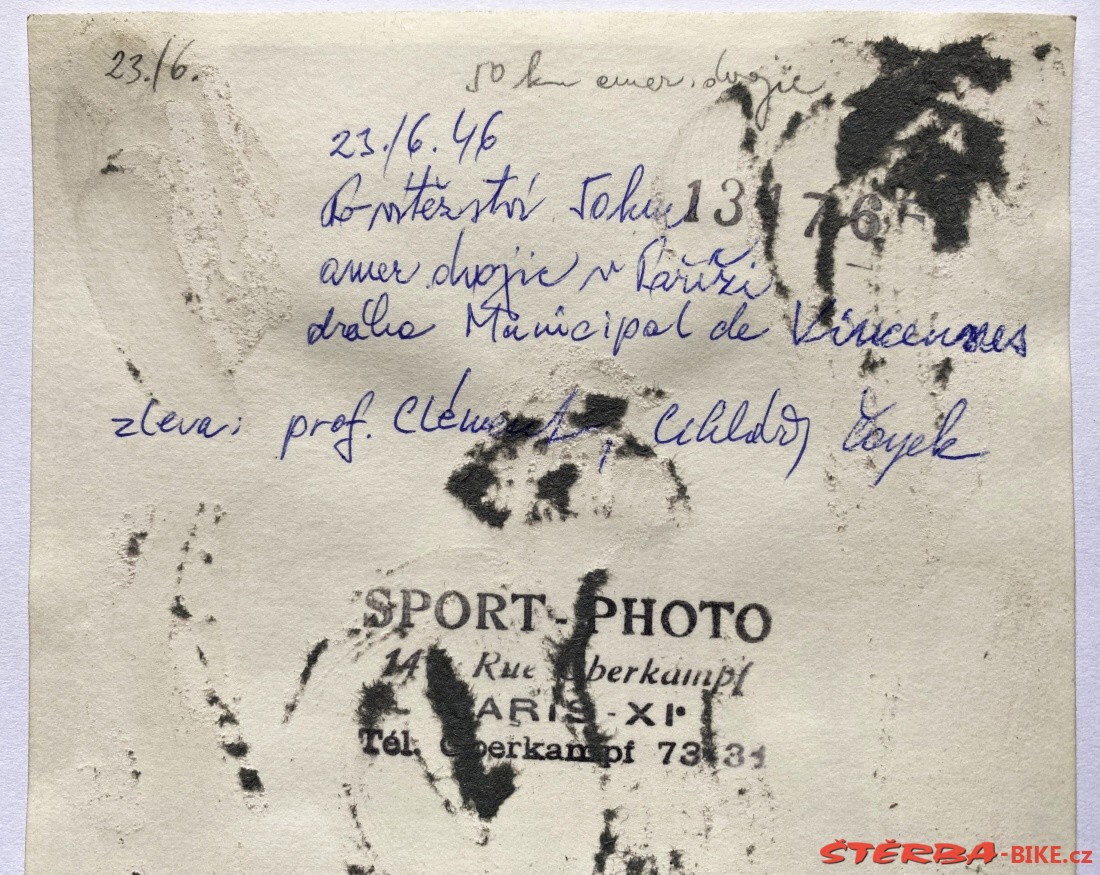 23./6.
50 km amer. dvojic
23./6. 46
Po vítězství 50 km
13176
amer. dvojic v Paříži
dráha Municipal de Vincennes
zleva: prof. Clément, Cihlář, Čoyek
SPORT-PHOTO
Rue Oberkampf
PARIS-XIe
Tél. Oberkampf 73
ŠTĚRBA-BIKE.cz